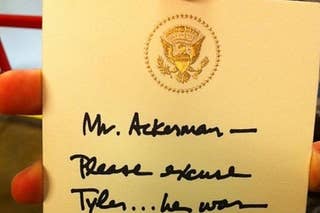 Mr. Ackerman —
Please excuse
Tyler... he was